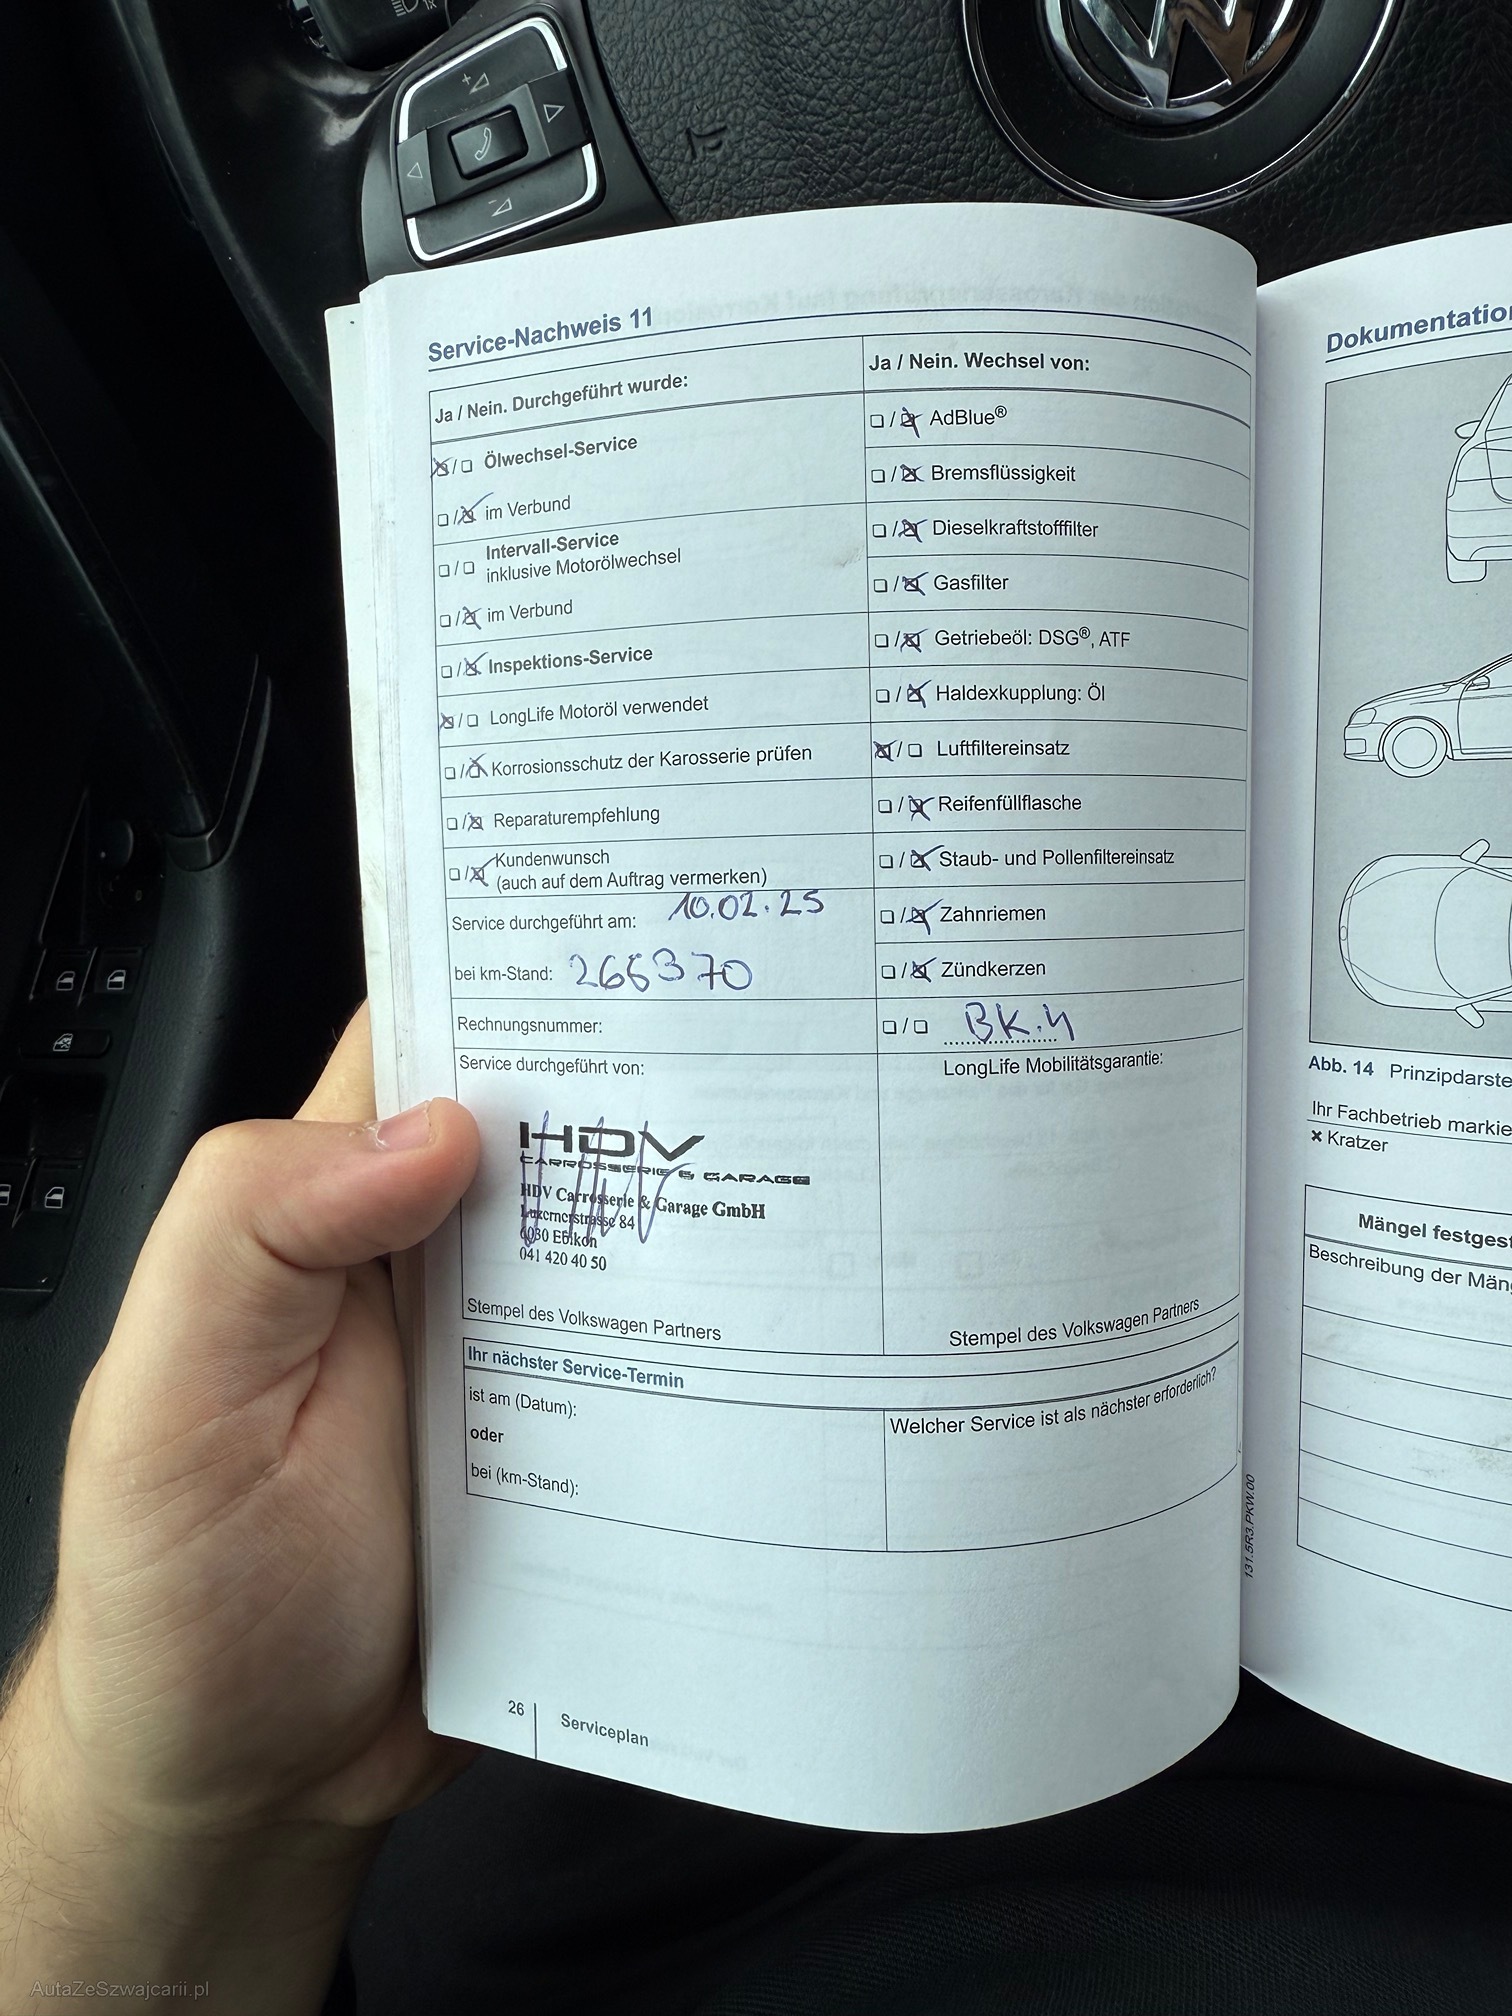 Service-Nachweis 11
Ja / Nein. Durchgeführt wurde:
Ölwechsel-Service
im Verbund
Intervall-Service
inklusive Motorölwechsel
im Verbund
Inspektions-Service
LongLife Motoröl verwendet
Korrosionsschutz der Karosserie prüfen
Reparaturempfehlung
Kundenwunsch
(auch auf dem Auftrag vermerken)
Service durchgeführt am: 10.02.25
bei km-Stand: 266370
Rechnungsnummer:
Service durchgeführt von:
HDV
CARROSSERIE & GARAGE
HDV Carrosserie & Garage GmbH
Luzernerstrasse 84
6030 Ebikon
041 420 40 50
Stempel des Volkswagen Partners
Ja / Nein. Wechsel von:
AdBlue®
Bremsflüssigkeit
Dieselkraftstofffilter
Gasfilter
Getriebeöl: DSG®, ATF
Haldexkupplung: Öl
Luftfiltereinsatz
Reifenfüllflasche
Staub- und Pollenfiltereinsatz
Zahnriemen
Zündkerzen
LongLife Mobilitätsgarantie:
Stempel des Volkswagen Partners
Ihr nächster Service-Termin
ist am (Datum):
oder
bei (km-Stand):
Welcher Service ist als nächster erforderlich?
131.5R3.PKW.00
26
Serviceplan
Abb. 14 Prinzipdarste
Ihr Fachbetrieb markie
× Kratzer
Mängel festgest
Beschreibung der Män
Dokumentatio
AutaZeSzwajcarii.pl